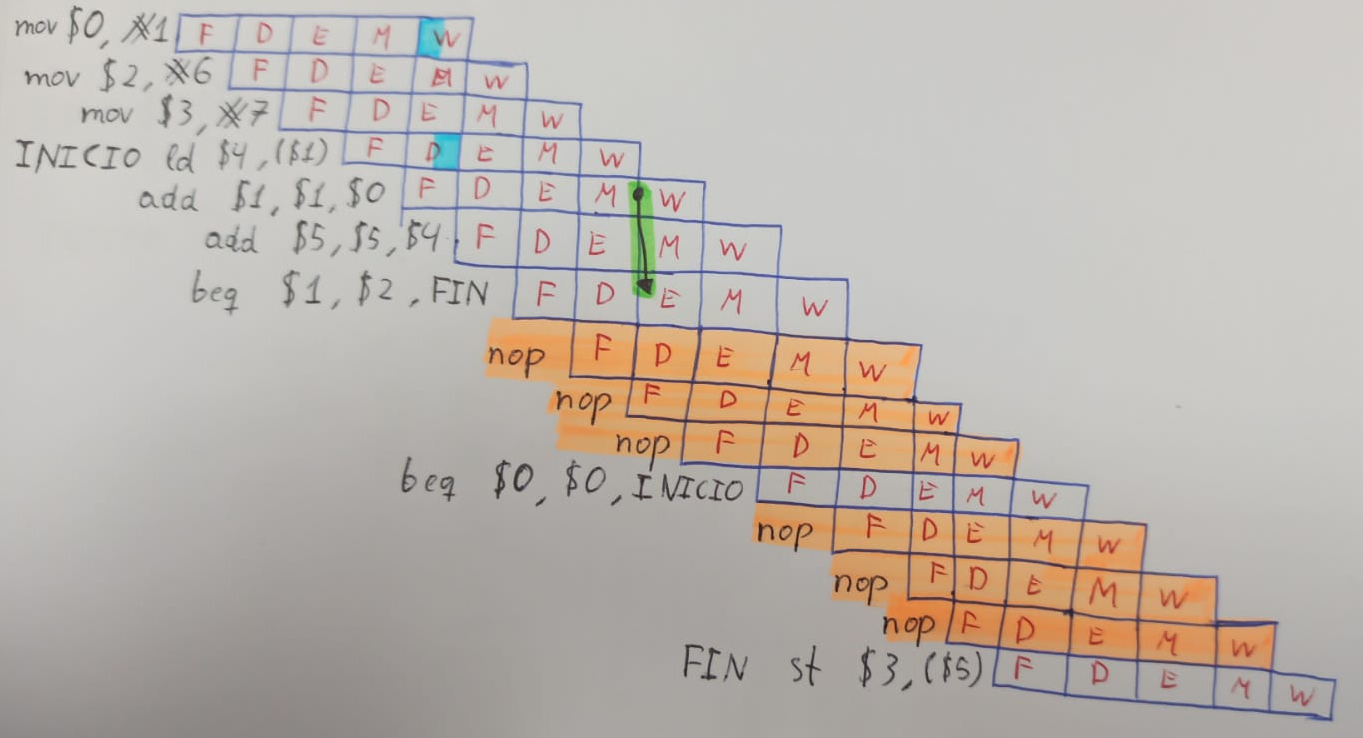 mov $0, #1 F D E M W
mov $2, #6 F D E M W
mov $3, #7 F D E M W
INICIO ld $4, ($1) F D E M W
add $1, $1, $0 F D E M W
add $5, $5, $4 F D E M W
beq $1, $2, FIN F D E M W
nop F D E M W
nop F D E M W
nop F D E M W
beq $0, $0, INICIO F D E M W
nop F D E M W
nop F D E M W
nop F D E M W
FIN st $3, ($5) F D E M W